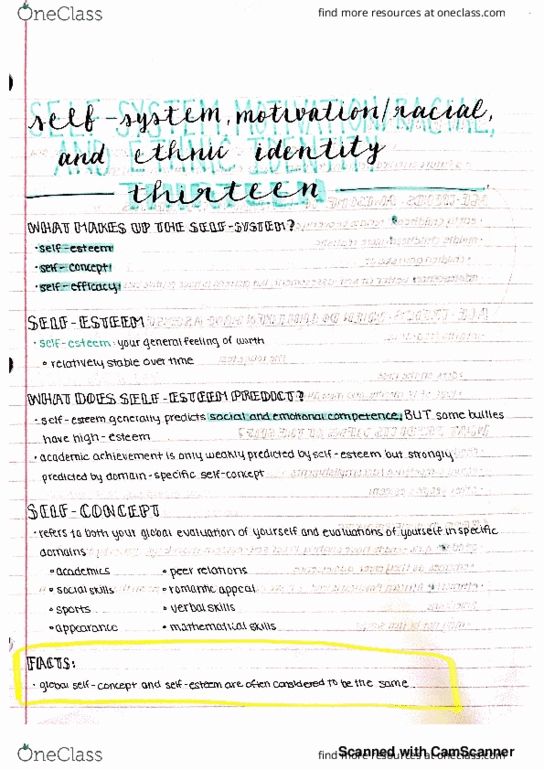 OneClass
find more resources at oneclass.com
self-system, motivation/racial,
and ethnic identity
thirteen
WHAT MAKES UP THE SELF-SYSTEM?
·self-esteem
·self-concept
·self-efficacy
SELF-ESTEEM
·self-esteem: your general feeling of worth
∘relatively stable over time
WHAT DOES SELF-ESTEEM PREDICT?
·self-esteem generally predicts social and emotional competence, BUT some bullies
have high-esteem
·academic achievement is only weakly predicted by self-esteem but strongly
predicted by domain-specific self-concept
SELF-CONCEPT
·refers to both your global evaluation of yourself and evaluations of yourself in specific
domains
∘academics ∘peer relations
∘social skills ∘romantic appeal
∘sports ∘verbal skills
∘appearance ∘mathematical skills
FACTS:
·global self-concept and self-esteem are often considered to be the same
OneClass
find more resources at oneclass.com
Scanned with CamScanner